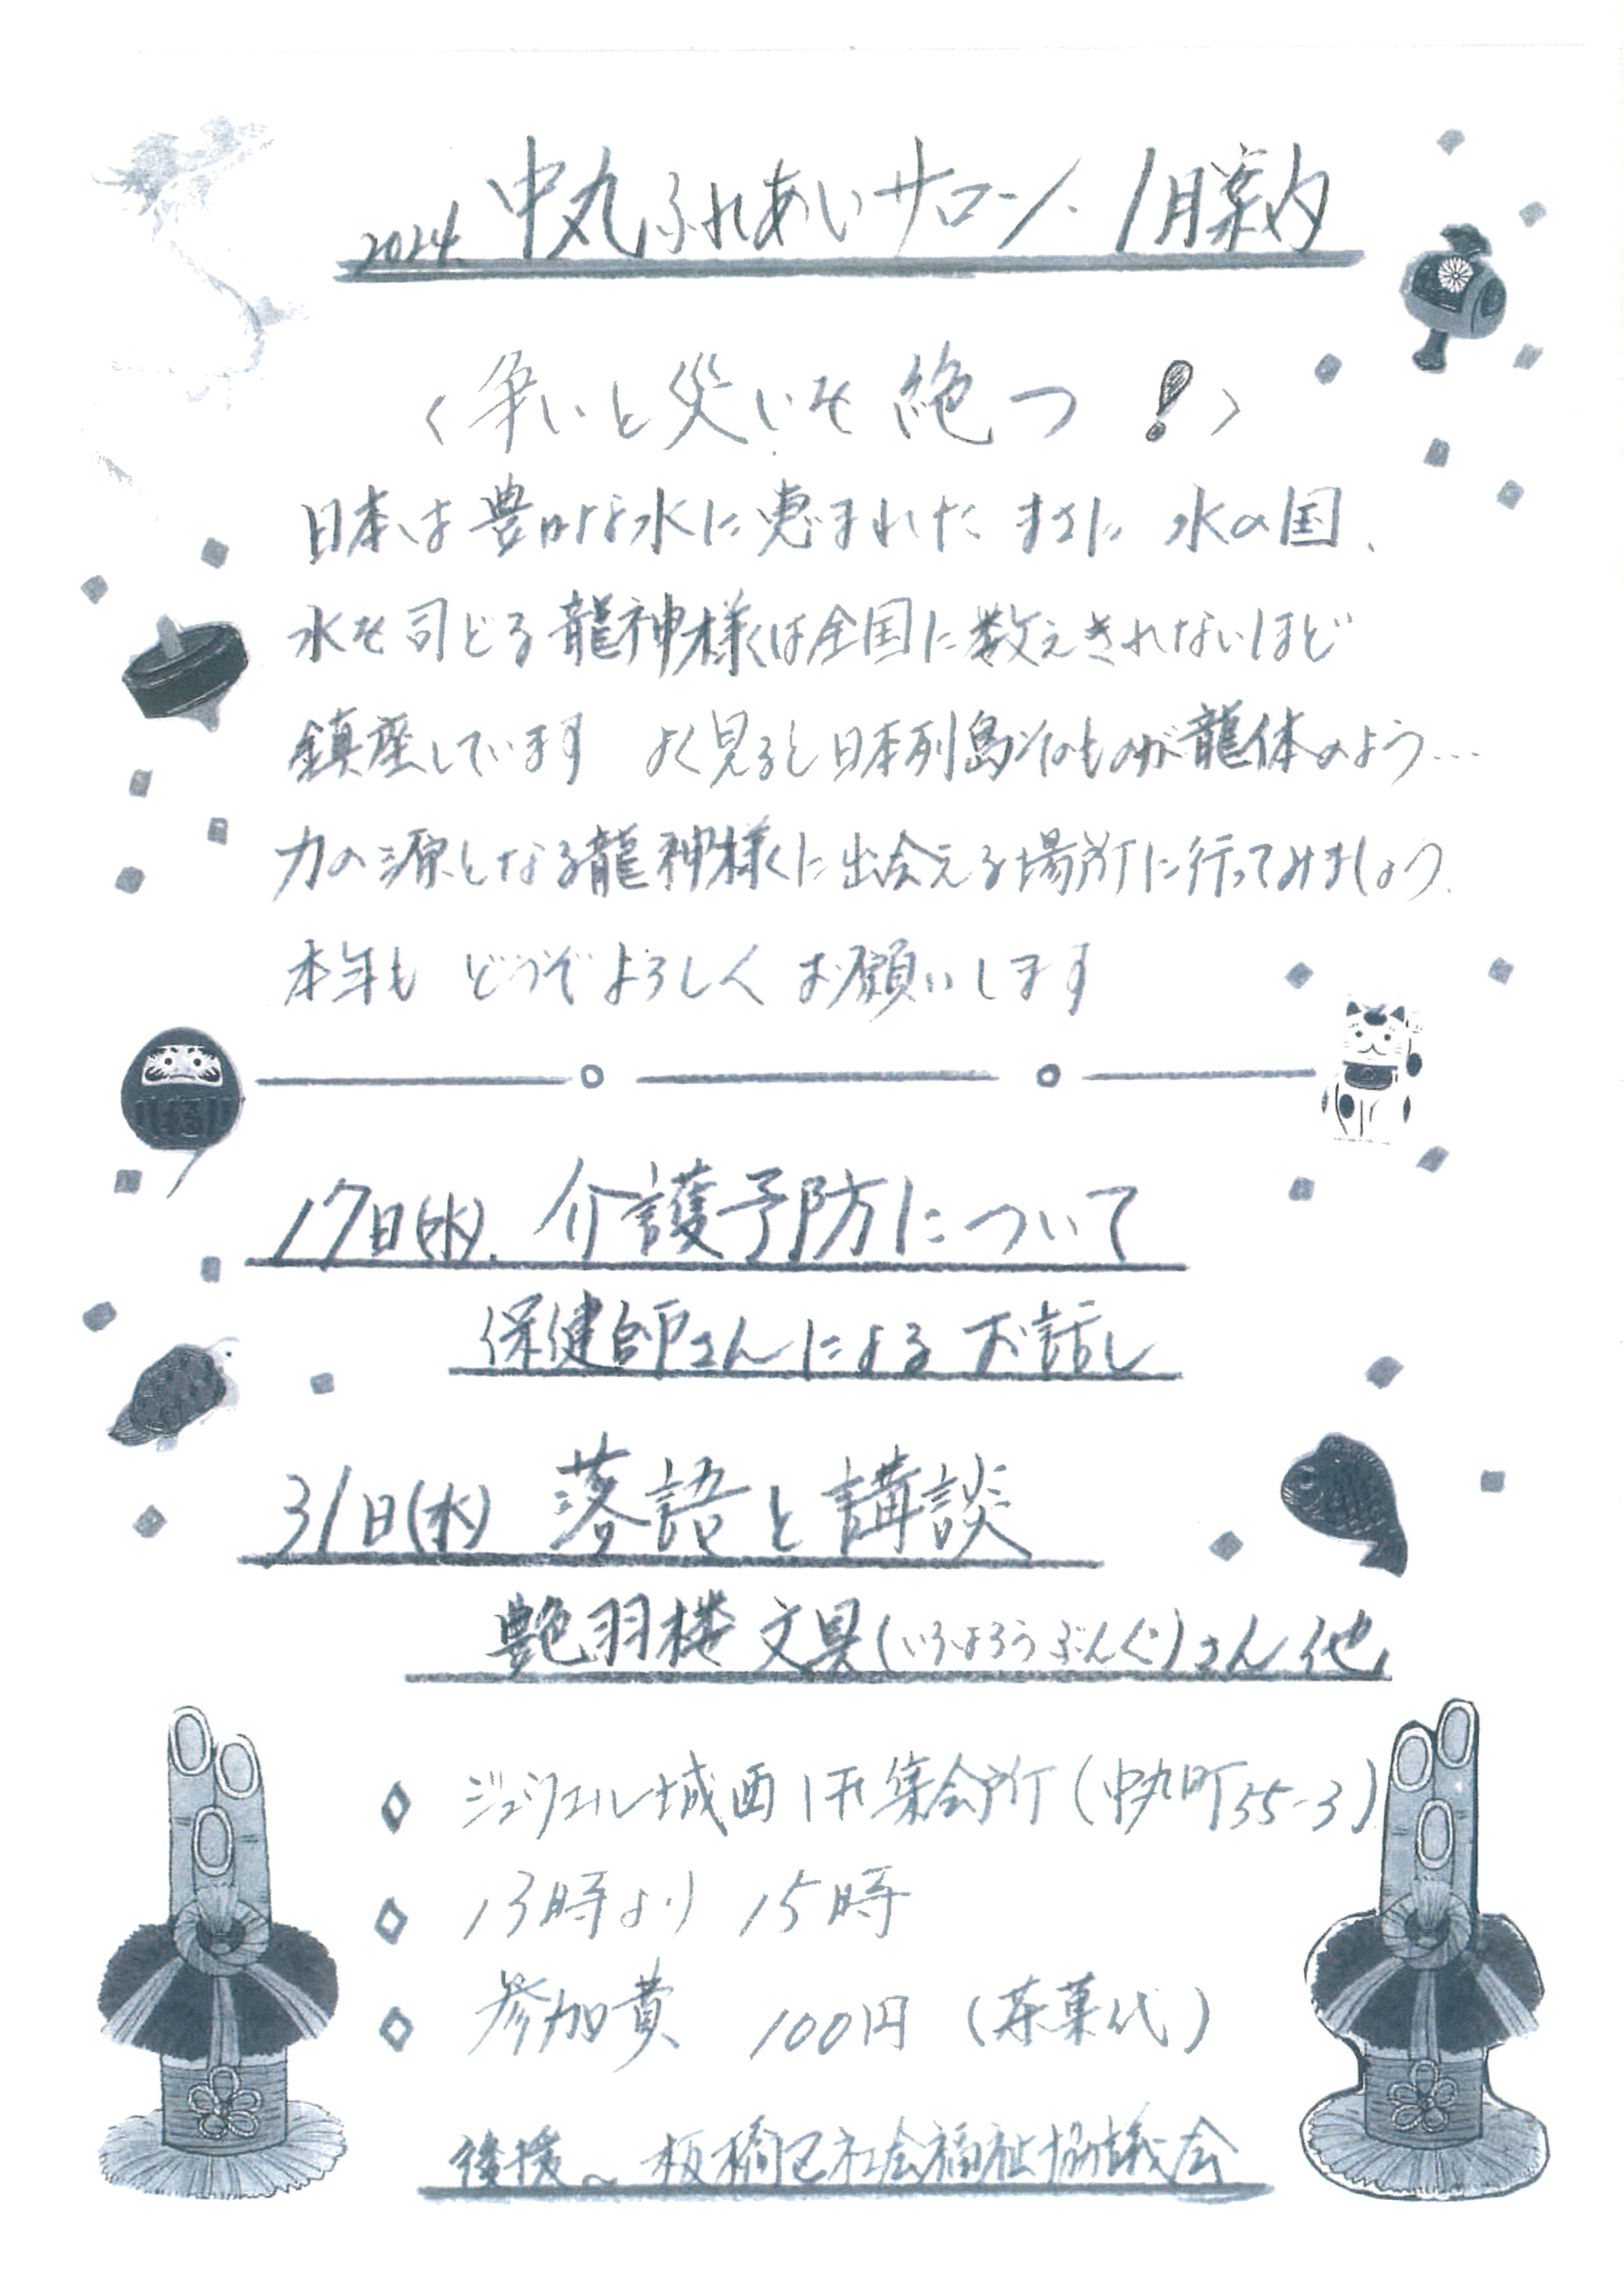 2024. 中丸ふれあいサロン. 1月案内
〈争いと災いを絶つ!〉
日本は豊かな水に恵まれた まさに 水の国、
水を司どる龍神様は全国に数えきれないほど
鎮座しています よく見ると日本列島そのものが龍体のよう…
力の源となる龍神様に出会える場所に行ってみましょう.
本年も どうぞよろしく お願いします
17日(水). 介護予防について
保健師さんによる お話し
31日(水) 落語と講談
艶羽楼 文具(いろはろう ぶんぐ)さん 他
ジュウェル城西1F集会所(中丸町55-3)
13時より 15時
参加費 100円 (茶菓代)
後援〜板橋区社会福祉協議会